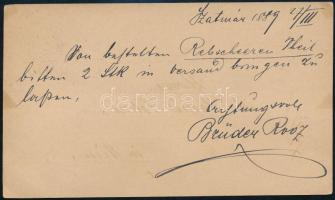 Szatmár 1879 17/III
Von bestellten Rebscheeren Theil
bitten 2 Stk in versand bringen zu
laßen.
Achtungsvoll
Brüder Rooz
darabanth